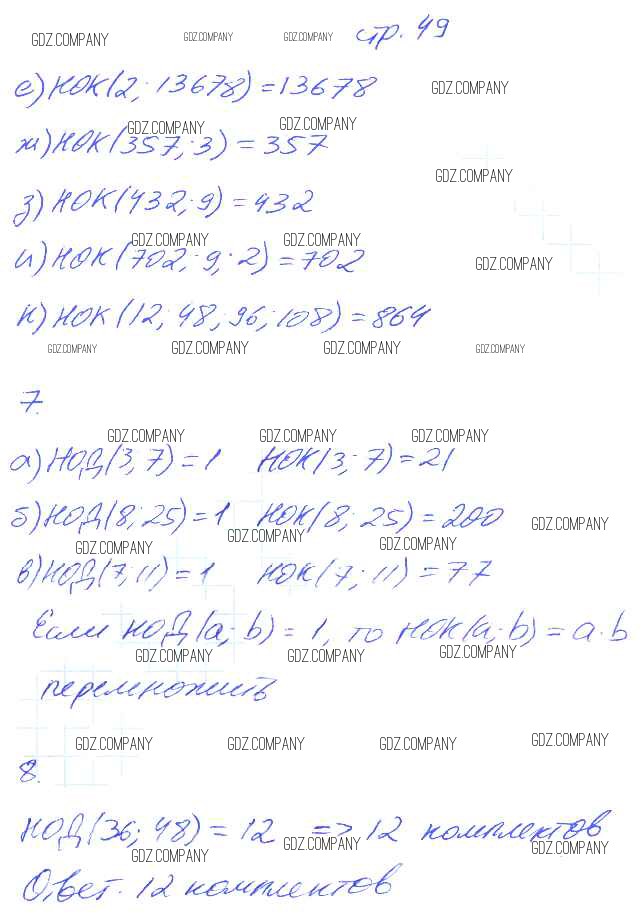 GDZ.COMPANY GDZ.COMPANY GDZ.COMPANY стр. 49
е) НОК(2; 13678) = 13678 GDZ.COMPANY
GDZ.COMPANY GDZ.COMPANY
ж) НОК(357; 3) = 357
GDZ.COMPANY
з) НОК(432; 9) = 432
GDZ.COMPANY GDZ.COMPANY
и) НОК(702; 9; 2) = 702 GDZ.COMPANY
к) НОК(12; 48; 96; 108) = 864
GDZ.COMPANY GDZ.COMPANY GDZ.COMPANY GDZ.COMPANY
7.
GDZ.COMPANY GDZ.COMPANY GDZ.COMPANY
а) НОД(3; 7) = 1 НОК(3; 7) = 21
б) НОД(8; 25) = 1 НОК(8; 25) = 200 GDZ.COMPANY
GDZ.COMPANY GDZ.COMPANY GDZ.COMPANY
в) НОД(7; 11) = 1 НОК(7; 11) = 77
Если НОД(a; b) = 1, то НОК(a; b) = a · b
GDZ.COMPANY GDZ.COMPANY GDZ.COMPANY
перемножить
GDZ.COMPANY GDZ.COMPANY GDZ.COMPANY GDZ.COMPANY
8.
НОД(36; 48) = 12 => 12 комплектов
GDZ.COMPANY GDZ.COMPANY GDZ.COMPANY
Ответ. 12 комплектов